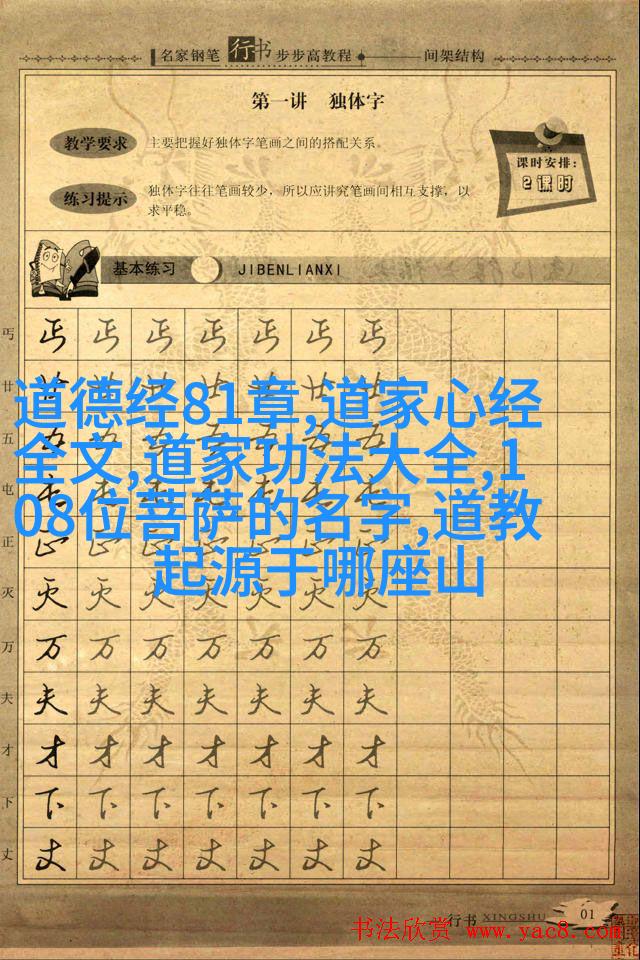 名家钢笔 行书 步步高教程 间架结构
第一讲 独体字
教学要求 主要把握好独体字笔画之间的搭配关系。
课时安排:
2课时
练习提示 独体字往往笔画较少，所以应讲究笔画间相互支撑，以
求平稳。
基本练习 JIBENLIANXI
丐 丐 丐 丐 丐 丐 丐 丐
道德经81章,道家心经
全文,道家功法大全,1
08位菩萨的名字,道教
起源于哪座山
廿
五
屯
正
灭 灭 灭 灭 灭 灭 灭 灭
万 万 万 万 万 万 万 万
夫 夫 夫 夫 夫 夫 夫 夫
才 才 才 才 才 才 才 才
下 下 下 下 下 下 下 下
丈 丈 丈 丈 丈 丈 丈 丈
行书 XINGSHU 01
书法欣赏 www.yac8.com